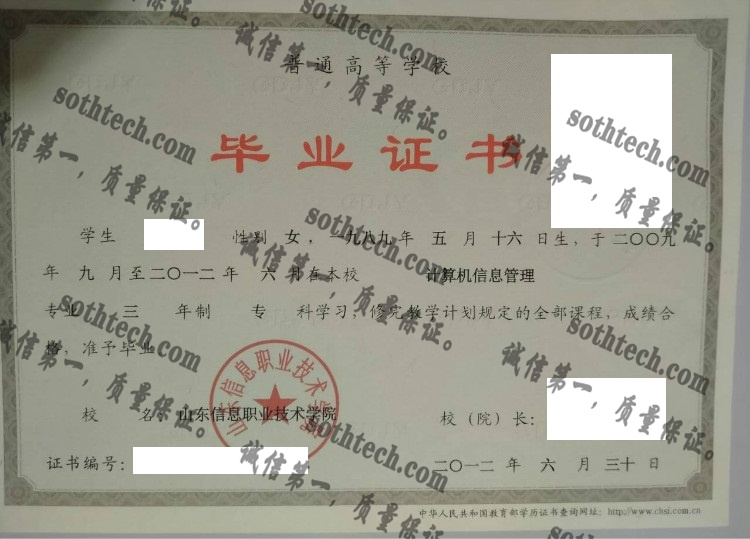 普通高等学校
毕业证书
学生 性别 女，一九八九年 五 月 十六 日生，于二〇〇九
年 九 月至二〇一二年 六 月在本校 计算机信息管理
专业 三 年制 专 科学习，修完教学计划规定的全部课程，成绩合
格，准予毕业
校 名：山东信息职业技术学院
校（院）长：
山东信息职业技术学院
证书编号：
二〇一二 年 六 月 三十 日
中华人民共和国教育部学历证书查询网址：http://www.chsi.com.cn
sothtech.com
诚信第一，质量保证。
sothtech.com
诚信第一，质量保证。
sothtech.com
诚信第一，质量保证。
sothtech.com
诚信第一，质量保证。
sothtech.com
诚信第一，质量保证。
sothtech.com
诚信第一，质量保证。
sothtech.com
诚信第一，质量保证。